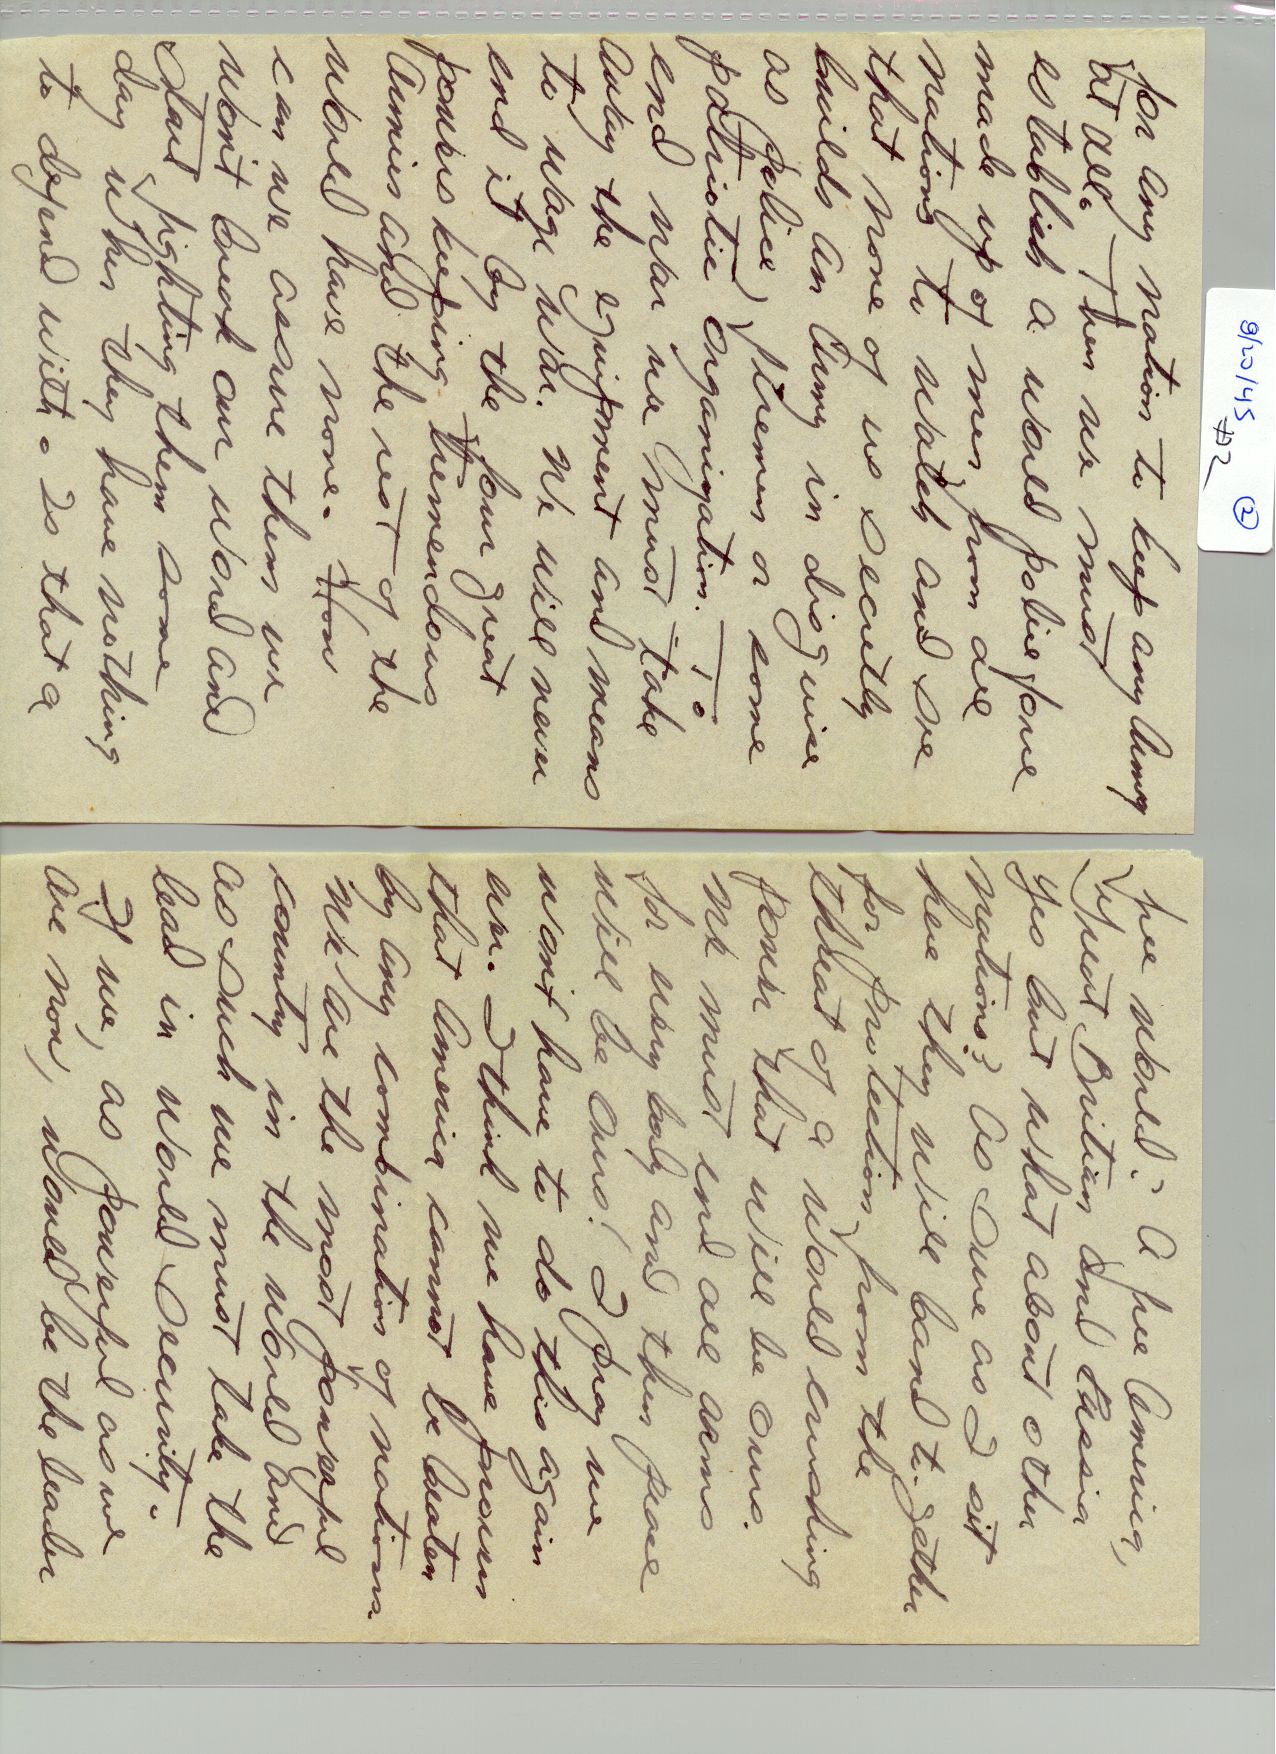 8/20/45 ②
#2
for any nation to keep any Army
at all. Then we must
establish a world police force
made up of men from all
nations to watch and see
that none of us secretly
builds an Army in disguise
as police, firemen or some
patriotic organization. To
end war we must take
away the equipment and means
to wage war. We will never
end it by the four great
powers keeping tremendous
Armies and the rest of the
world have none. How
can we assure them we
won't break our word and
start fighting them some
day when they have nothing
to defend with. Is that a
free world? A free America,
Great Britian and Russia
yes but what about other
nations? As sure as I sit
here they will band together
for protection from the
threat of a world crushing
power that will be ours.
We must end all arms
for every body and then peace
will be ours! I pray we
won't have to do this again
ever. I think we have proven
that America cannot be beaten
by any combination of nations.
We are the most powerful
country in the world and
as such we must take the
lead in world security.
If we, as powerful as we
are now, would be the leader